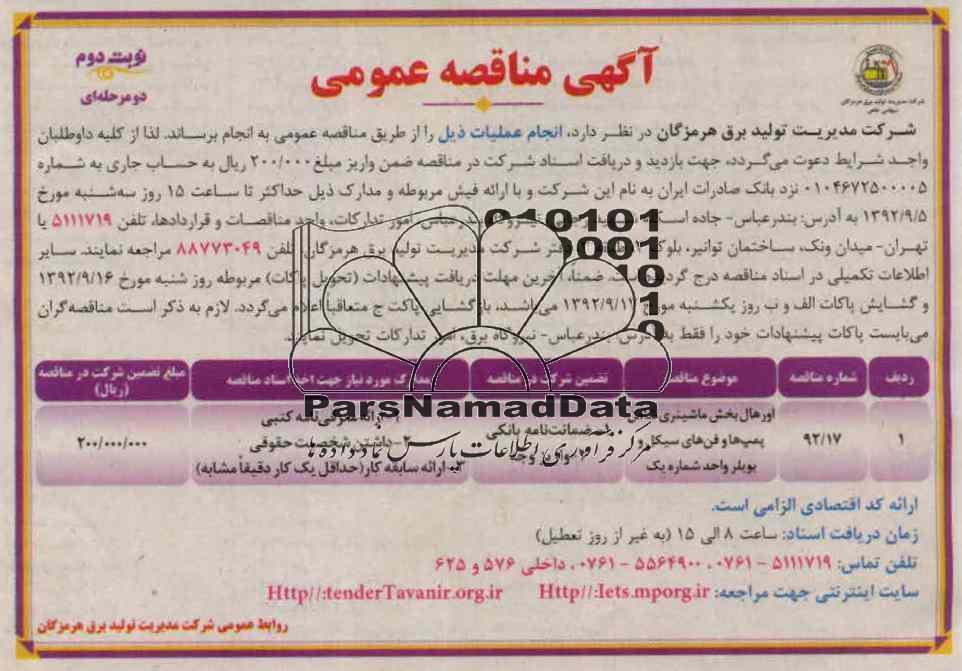 آگهی مناقصه عمومی
نوبت دوم
دو مرحله‌ای
شرکت مدیریت تولید برق هرمزگان
شرکت مدیریت تولید برق هرمزگان در نظر دارد، انجام عملیات ذیل را از طریق مناقصه عمومی به انجام برساند. لذا از کلیه داوطلبان
واجد شرایط دعوت می‌گردد، جهت بازدید و دریافت اسناد شرکت در مناقصه ضمن واریز مبلغ ۲۰۰/۰۰۰ ریال به حساب جاری به شماره
۰۱۰۴۶۷۲۵۰۰۰۰۵ نزد بانک صادرات ایران به نام این شرکت و با ارائه فیش مربوطه و مدارک ذیل حداکثر تا ساعت ۱۵ روز سه‌شنبه مورخ
۱۳۹۲/۹/۵ به آدرس: بندرعباس- جاده امور تدارکات، واحد مناقصات و قراردادها، تلفن ۵۱۱۱۷۱۹ یا
تهران- میدان ونک، ساختمان توانیر، بلوک شرکت مدیریت تولید برق هرمزگان تلفن ۸۸۷۷۳۰۴۹ مراجعه نمایند. سایر
اطلاعات تکمیلی در اسناد مناقصه درج ضمناً آخرین مهلت دریافت پیشنهادات (تحویل پاکات) مربوطه روز شنبه مورخ ۱۳۹۲/۹/۱۶
و گشایش پاکات الف و ب روز یکشنبه مورخ می‌باشد، بازگشایی پاکت ج متعاقباً اعلام می‌گردد. لازم به ذکر است مناقصه‌گران
می‌بایست پاکات پیشنهادات خود را فقط به آدرس: بندرعباس- نیروگاه برق، امور تدارکات تحویل نمایند.
010101
0001
10
1
0
ردیف شماره مناقصه موضوع مناقصه تضمین شرکت در مناقصه مدارک مورد نیاز جهت اخذ اسناد مناقصه مبلغ تضمین شرکت در مناقصه (ریال)
۱ ۹۲/۱۷ اورهال بخش ماشینری
پمپ‌ها و فن‌های سیکل و
بویلر واحد شماره یک
ضمانت‌نامه بانکی
۱- ارائه معرفی‌نامه کتبی
۲- داشتن شخصیت حقوقی
۳- ارائه سابقه کار (حداقل یک کار دقیقاً مشابه)
۲۰۰/۰۰۰/۰۰۰
ParsNamadData
مرکز فرآوری اطلاعات پارس نماد داده ها
ارائه کد اقتصادی الزامی است.
زمان دریافت اسناد: ساعت ۸ الی ۱۵ (به غیر از روز تعطیل)
تلفن تماس: ۵۱۱۱۷۱۹ - ۰۷۶۱، ۵۵۶۴۹۰۰ - ۰۷۶۱، داخلی ۵۷۶ و ۶۲۵
سایت اینترنتی جهت مراجعه: Http//:Iets.mporg.ir Http//:tenderTavanir.org.ir
روابط عمومی شرکت مدیریت تولید برق هرمزگان